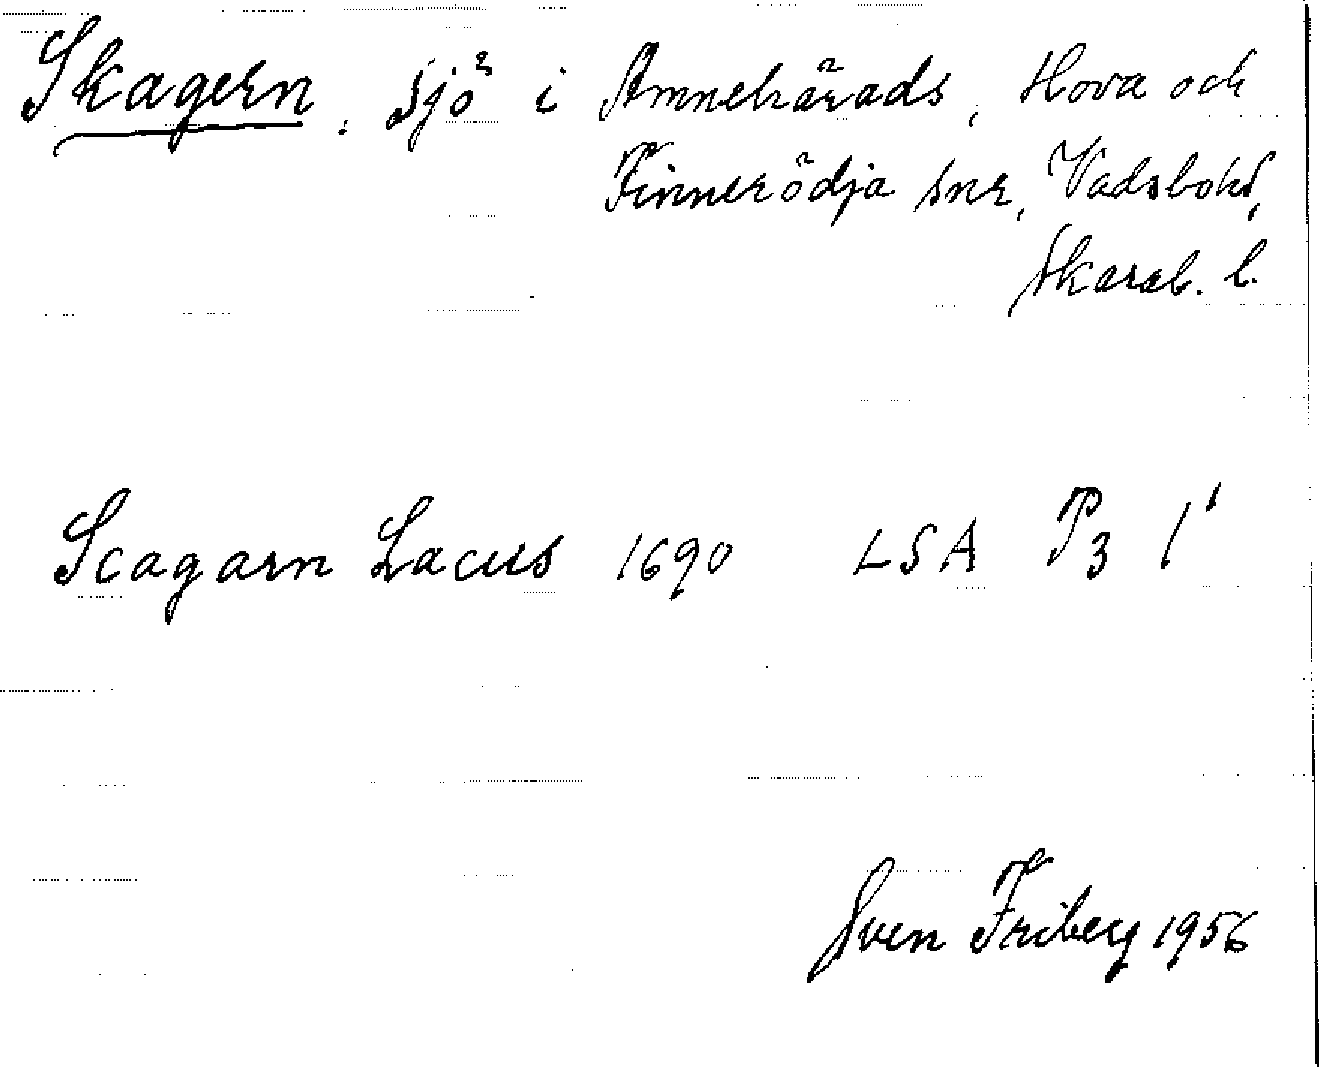 Skagern, sjö i Amnehärads, Hova och
Finnerödja snr, Vadsbo hd,
Skarab. l.
Scagarn Lacus 1690 LSA P3 1'
Sven Friberg 1956